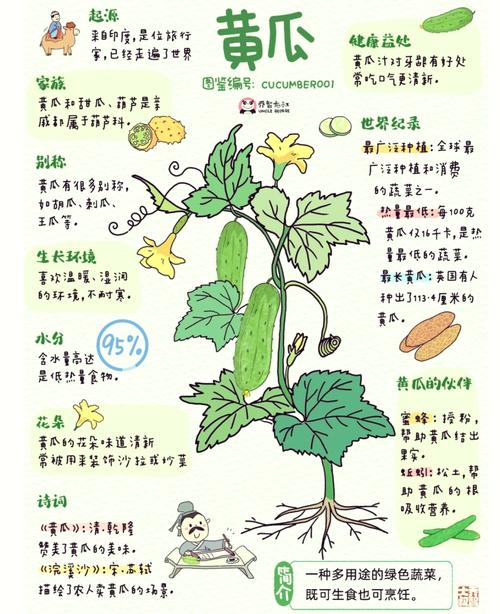 黄瓜
图鉴编号: CUCUMBER001
UNCLE GEORGE
起源
来自印度，是位旅行
家，已经走遍了世界
家族
黄瓜和甜瓜、葫芦是亲
戚都属于葫芦科。
别称
黄瓜有很多别称，
如胡瓜、刺瓜、
王瓜等。
生长环境
喜欢温暖、湿润
的环境，不耐寒。
水分
95%
含水量高达
是低热量食物。
花朵
黄瓜的花朵味道清新
常被用来装饰沙拉或炒菜
诗词
《黄瓜》：清.乾隆
赞美了黄瓜的美味。
《浣溪沙》：宋.苏轼
描绘了农人卖黄瓜的场景。
健康益处
黄瓜汁对牙龈有好处
常吃口气更清新。
世界纪录
最广泛种植：全球最
广泛种植和消费
的蔬菜之一。
热量最低：每100克
黄瓜仅16千卡，是热
量最低的蔬菜。
最长黄瓜：英国有人
种出了113.4厘米的
黄瓜。
黄瓜的伙伴
蜜蜂：授粉，
帮助黄瓜结出
果实。
蚯蚓：松土，帮
助黄瓜的根
吸收营养。
简介
一种多用途的绿色蔬菜，
既可生食也可烹饪。